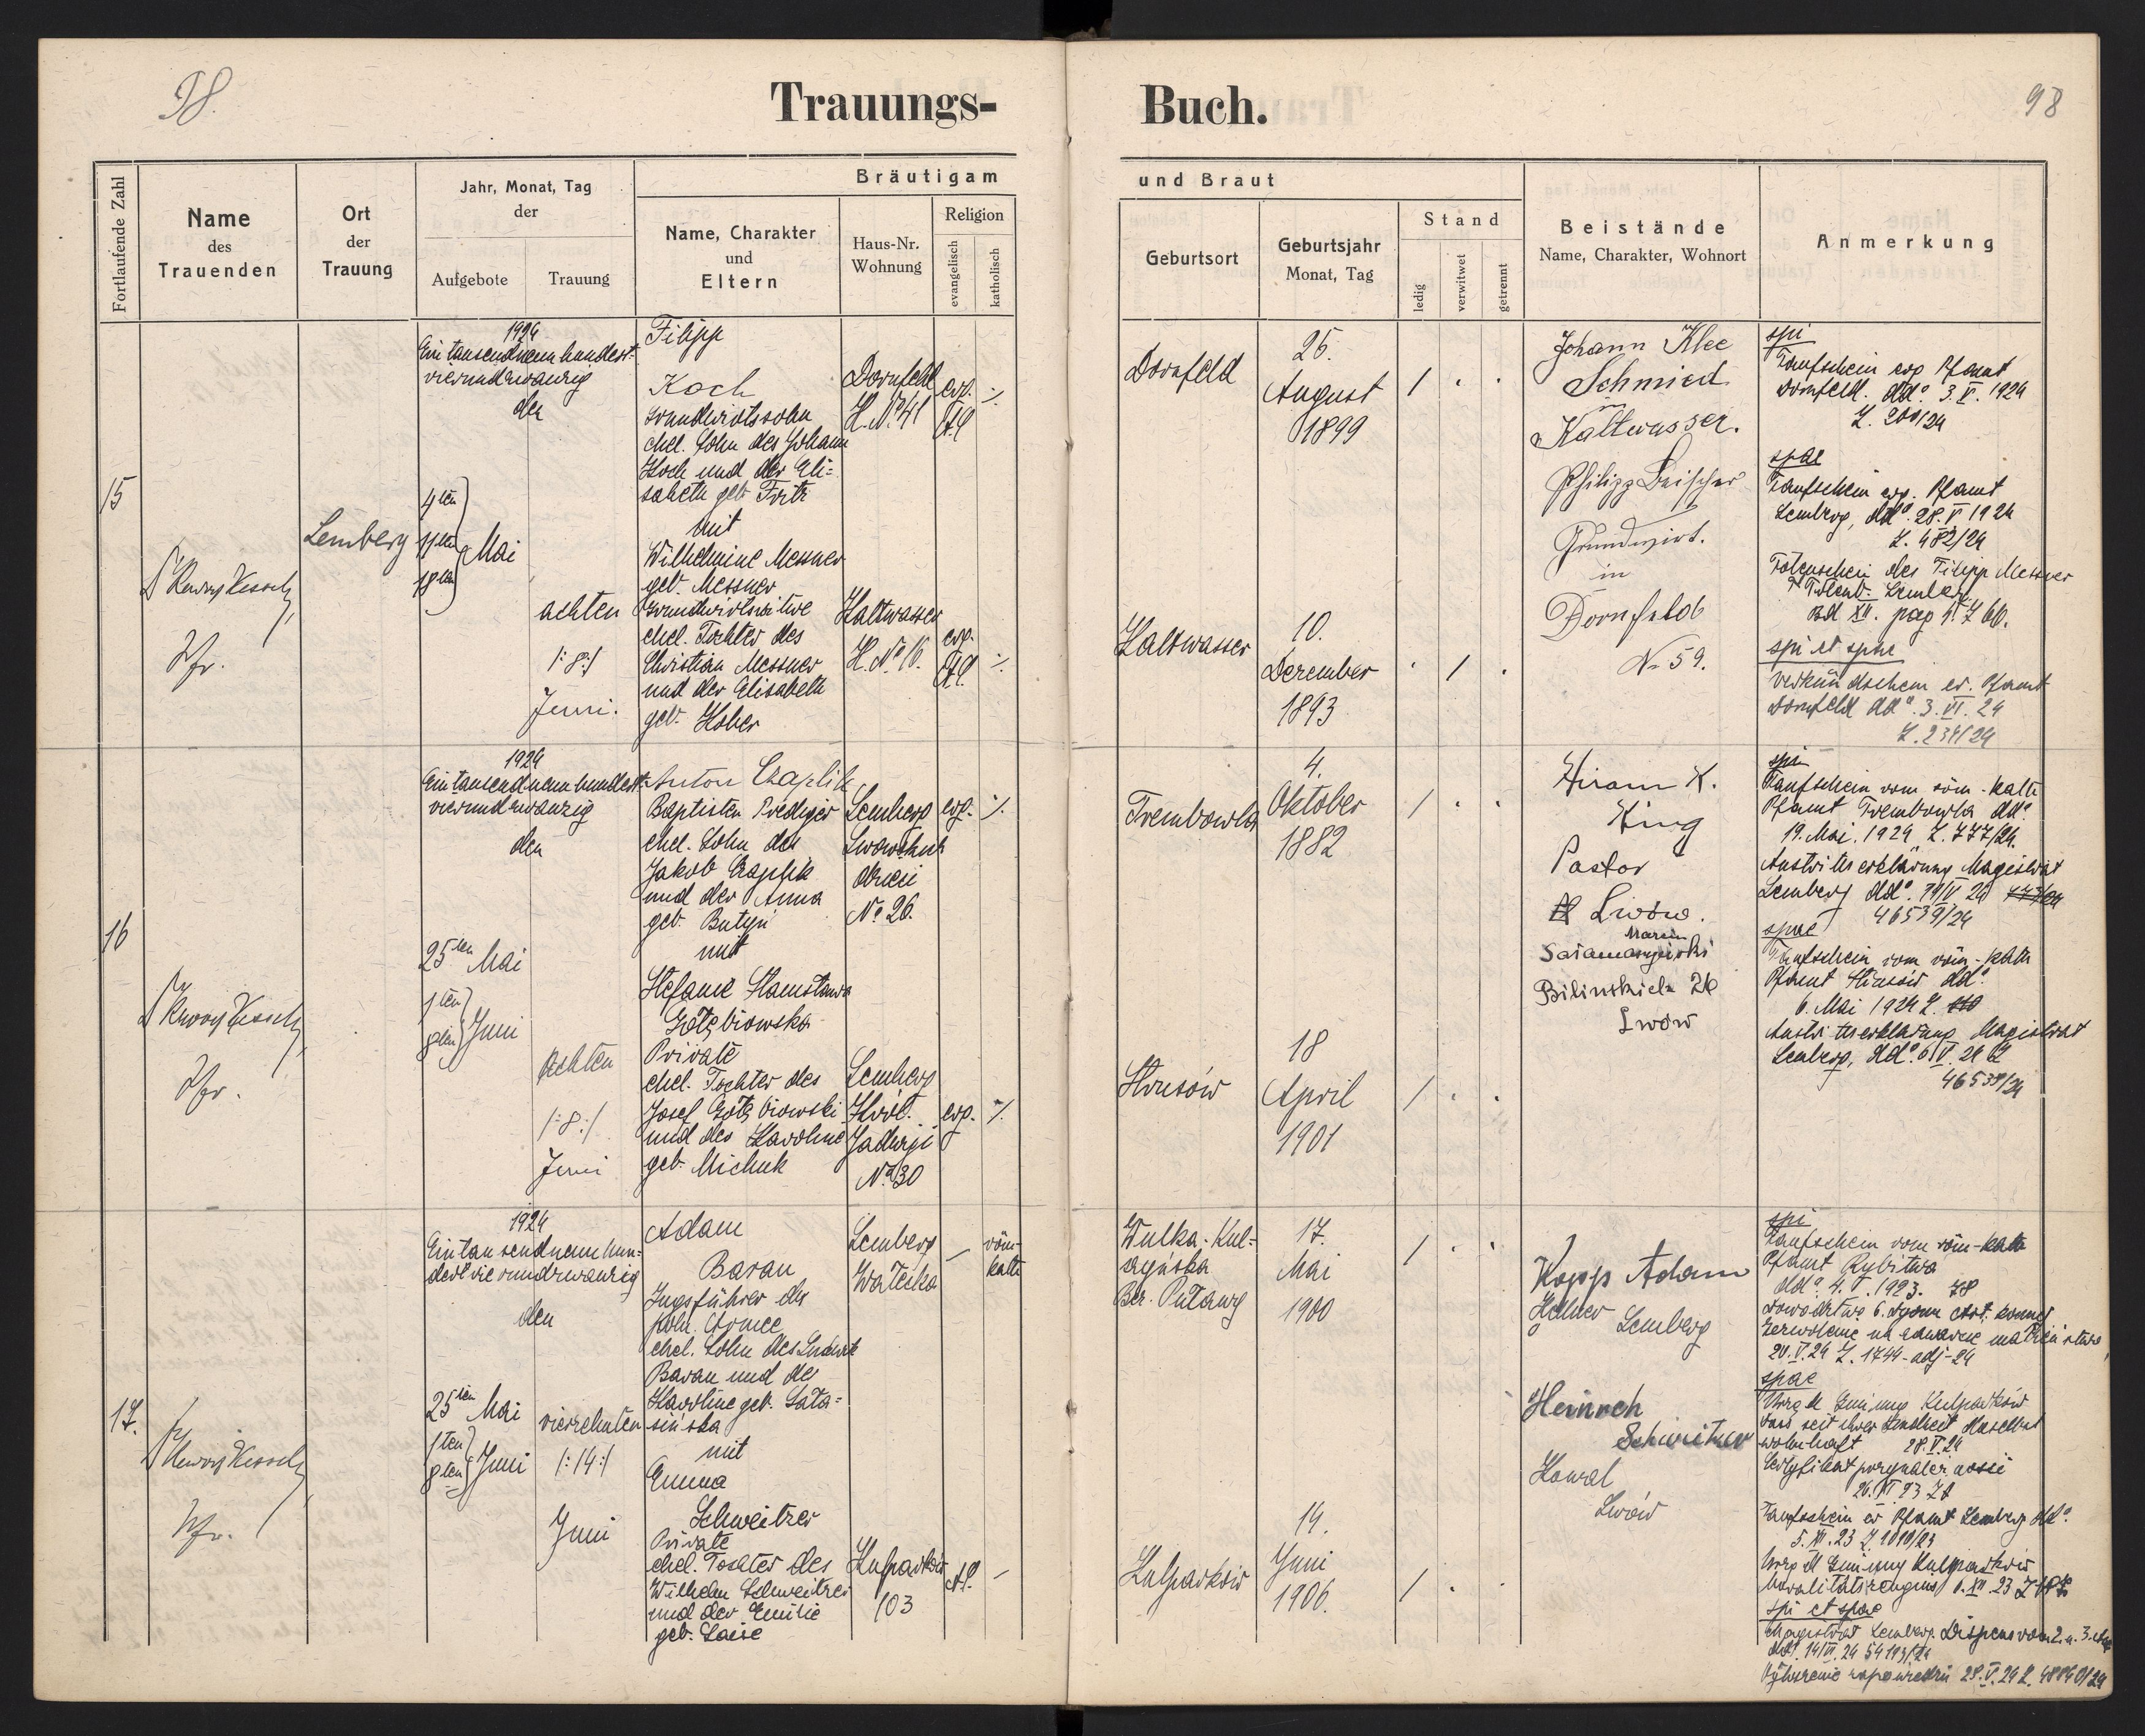 98.
Trauungs-
Buch.
98
Fortlaufende Zahl
Name
des
Trauenden
Ort
der
Trauung
Jahr, Monat, Tag
der
Aufgebote
Trauung
Bräutigam
Name, Charakter
und
Eltern
Haus-Nr.
Wohnung
Religion
evangelisch
katholisch
und Braut
Geburtsort
Geburtsjahr
Monat, Tag
Stand
ledig
verwitwet
getrennt
Beistände
Name, Charakter, Wohnort
Anmerkung
15
Pfr.
Lemberg
1924
Ein tausendneunhundert-
vierundzwanzig
den
4ten
11ten Mai
18ten
achten
/:8:/
Juni.
Filipp
Koch
Grundwirtssohn
ehel. Sohn des Johann
Koch und der Eli-
sabeth geb. Fritz
mit
Wilhelmine Messner
geb. Messner
Grundwirtswitwe
ehel. Tochter des
Christian Messner
und der Elisabeth
geb. Kober
Dornfeld
H. No 41
evg.
Kaltwasser
H. No 16.
evg.
Dornfeld
25.
August
1899
Kaltwasser
10.
Dezember
1893
Johann Klee
Schmied
in
Kaltwasser.
Philipp
Grundwirt.
in
Dornfeld
No 59.
spi
Taufschein evg Pfamt
Dornfeld. ddo. 3. V. 1924
Z. 200/24
spae
Taufschein evg. Pfamt
Lemberg, ddo. 28. V 1924
Z. 482/24
Totenschein des Filipp Messner
Bd XII. pag
spi et spae
Verkündschein ev. Pfamt
Dornfeld ddo. 3. VI. 24
Z. 234/24
16
Pfr.
1924
Ein tausendneunhundert-
vierundzwanzig
den
25ten Mai
1ten
8ten Juni
Achten
/:8:/
Juni
Anton Czaplik
Baptisten Prediger
ehel. Sohn des
Jakob Czaplik
und der Anna
geb. Butyn
mit
Stefanie Stanisława
Gołębiowska
Private
ehel. Tochter des
Josef Gołębiowski
und der Karoline
geb. Michuk
Lemberg
Lwowskich
dzieci
No 26.
evg.
Lemberg
Król.
Jadwigi
No 30
evg.
Trembowla
4.
Oktober
1882
18
April
1901
Hiram K.
King
Pastor
Lwów.
Marcin
Bilinskich 26
Lwów
spi
Taufschein vom röm-kath
Pfamt Trembowla ddo.
19. Mai. 1924 Z. 777/24.
Austrittserklärung Magistrat
Lemberg ddo.
46539/24
spae
Taufschein vom röm-kath
Pfamt
6. Mai 1924 Z.
Austrittserklärung Magistrat
Lemberg, ddo.
46539/24
17.
Pfr.
1924
Ein tausendneunhun-
dertvierundzwanzig
den
25ten Mai
1ten
8ten Juni
vierzehnten
/:14:/
Juni
Adam
Baran
Zugsführer der
poln. Armee
ehel. Sohn des Ludwik
Baran und der
Karoline geb. Łata-
sińska
mit
Emma
Schweitzer
Private
ehel. Tochter des
Wilhelm Schweitzer
und der Emilie
geb. Laise
Lemberg
röm-
kath
Kulparków
103
Wulka-Kul-
Bez. Puławy
17.
Mai
1900
Kulparków
14.
Juni
1906.
Kopp Adam
Lemberg
Heinrch
Schweitzer
Kowal
Lwów
spi
Taufschein vom röm-kath
Pfamt Rybitwa
ddo. 4. V. 1923. 78
20. V. 24 Z. 1744-adj-24
spae
Urząd Gminny Kulparków
wohnhaft 28. V. 24
Taufschein ev Pfamt Lemberg ddo.
5. XI. 23 Z 1010/23
Urząd Gminny Kulparków
spi et spae
Magistrat Lemberg. Dispens vom 2. u. 3.